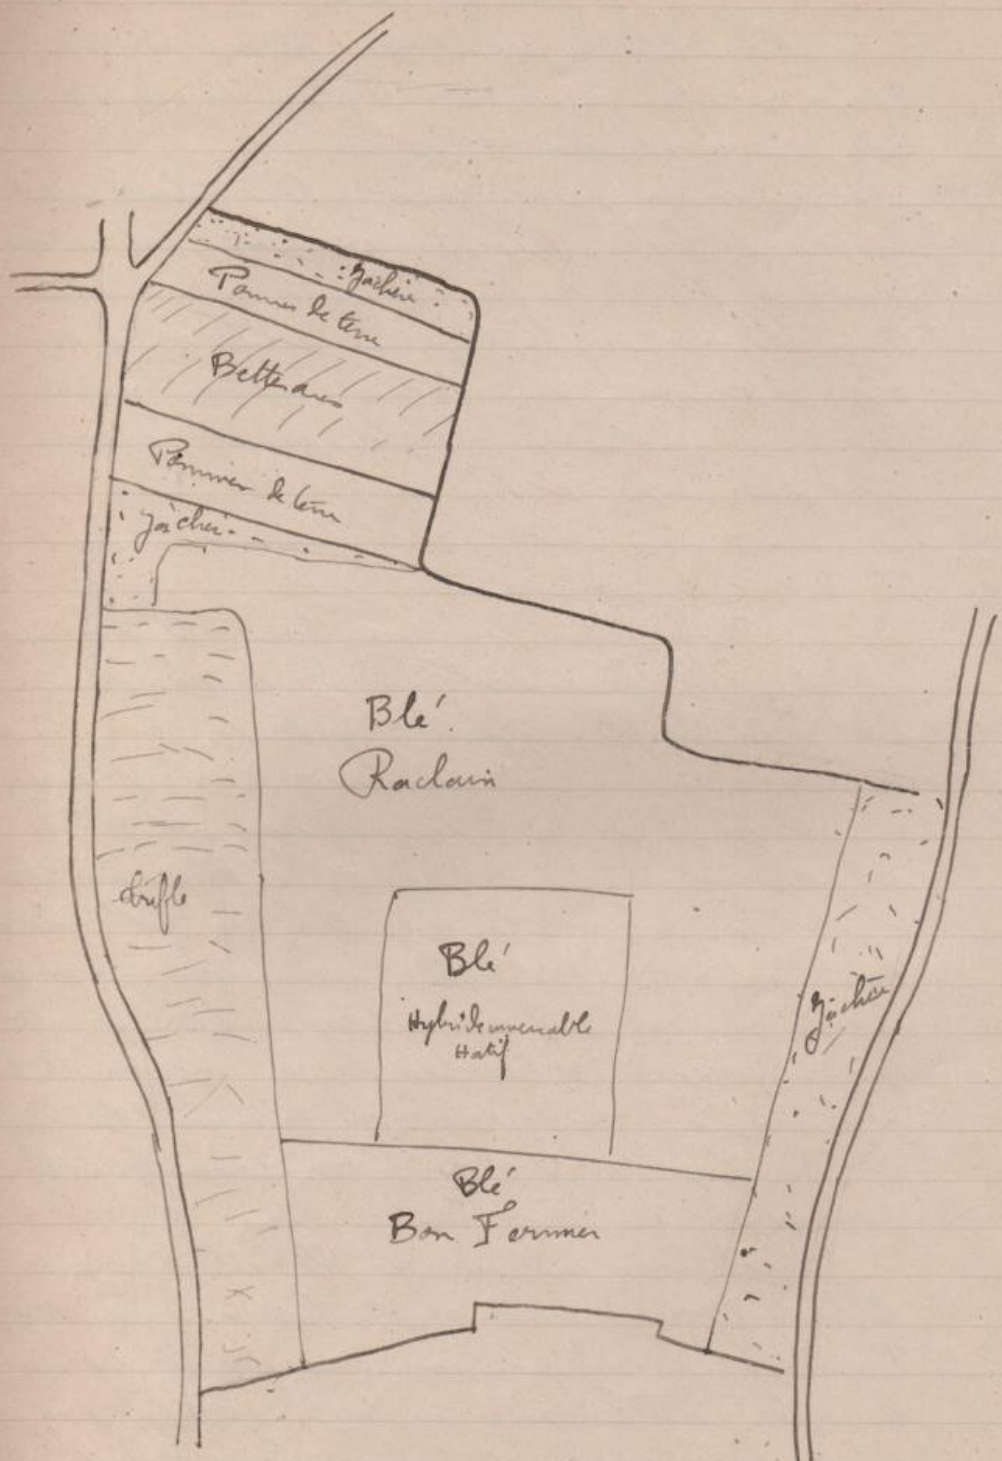 Jachère
Pommes de terre
Betteraves
Pommes de terre
Jachère
Blé
Raclain
trèfle
Blé
Hybride inversable
Hatif
Jachère
Blé
Bon Fermier